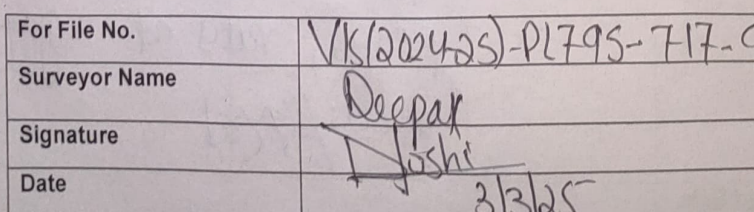 For File No. VIS(2024-25)-PL795-717-
Surveyor Name Deepak
Signature Joshi
Date 3/3/25